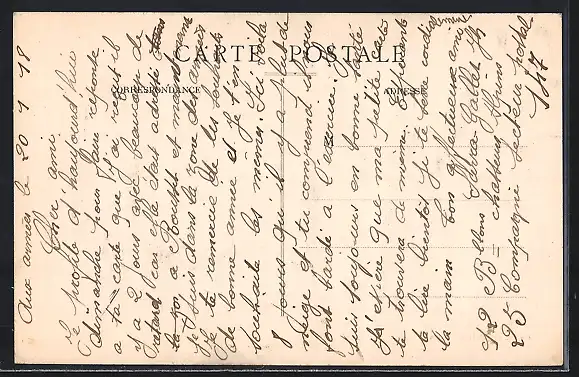 CARTE POSTALE
CORRESPONDANCE
ADRESSE
Aux armées le 20 1 18
Cher ami
Je profite d'haujourd'hui
dimanche pour faire réponse
a ta carte que j'ai reçut il
y a 2 jours avec beaucoup de
retard car elle étais adressé dans
a et maintenant
je suis dans la zone des armées
Je te remercie de tes souhaits
de bonne année et je t'en
souhaite les mêmes. Ici voila
8 jours qu'il y a plus de
neige et tu comprend si nous
font bardi a l'exercice. Je
suis toujours en bonne santé
J'espère que ma petite carte
te trouvera de même. Espérant
te lire bientôt je te serre cordialement
la main ton affectueux ami
Gallet
12 B ons chasseurs Alpins
25 Compagnie Secteur postal
117